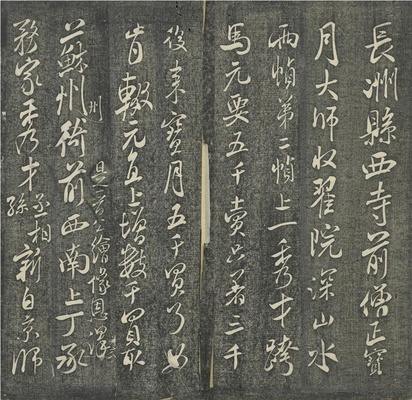 長洲縣西寺前僧正寶
月大師收翟院深山水
兩幀第二幀上一秀才跨
馬元要五千賣只著三千
後來寶月五千買了如
肯輟元直上增數千買取
州
繪像恩澤
上蘇州衙前西南上丁承
務家秀才丞相孫新自京師